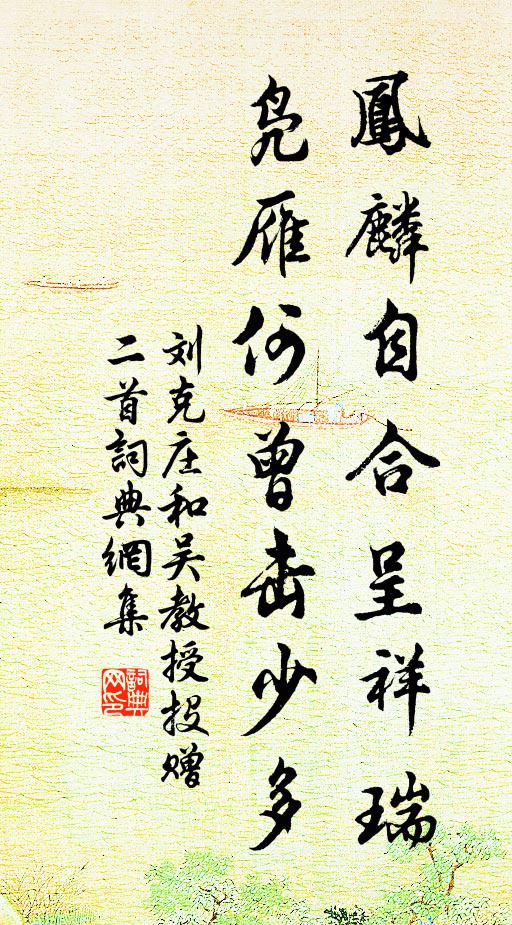 鳳麟自合呈祥瑞
凫雁何曾击少多
刘克庄和吴教授投赠
二首詞典網集
詞典
网印